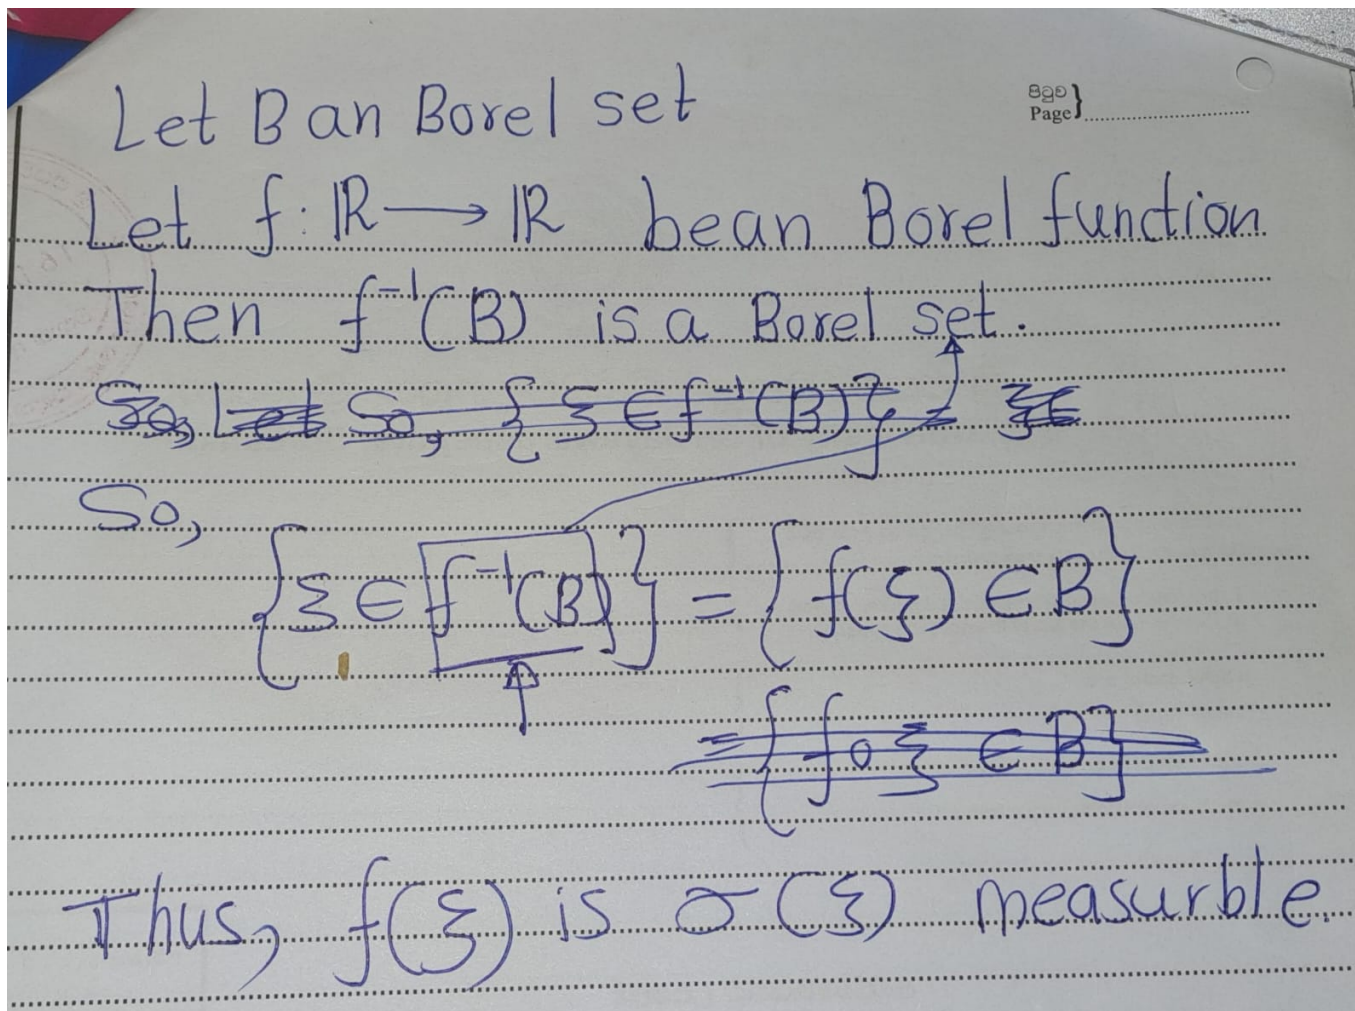 Let B an Borel set
පිටුව
Page}
Let f : ℝ → ℝ bean Borel function
Then f⁻¹(B) is a Borel set.
So, Let So, { ξ ∈ f⁻¹(B)} = ξ ∈
So,
{ξ ∈ f⁻¹(B)} = {f(ξ) ∈ B}
= {f ∘ ξ ∈ B}
Thus, f(ξ) is σ(ξ) measurble.